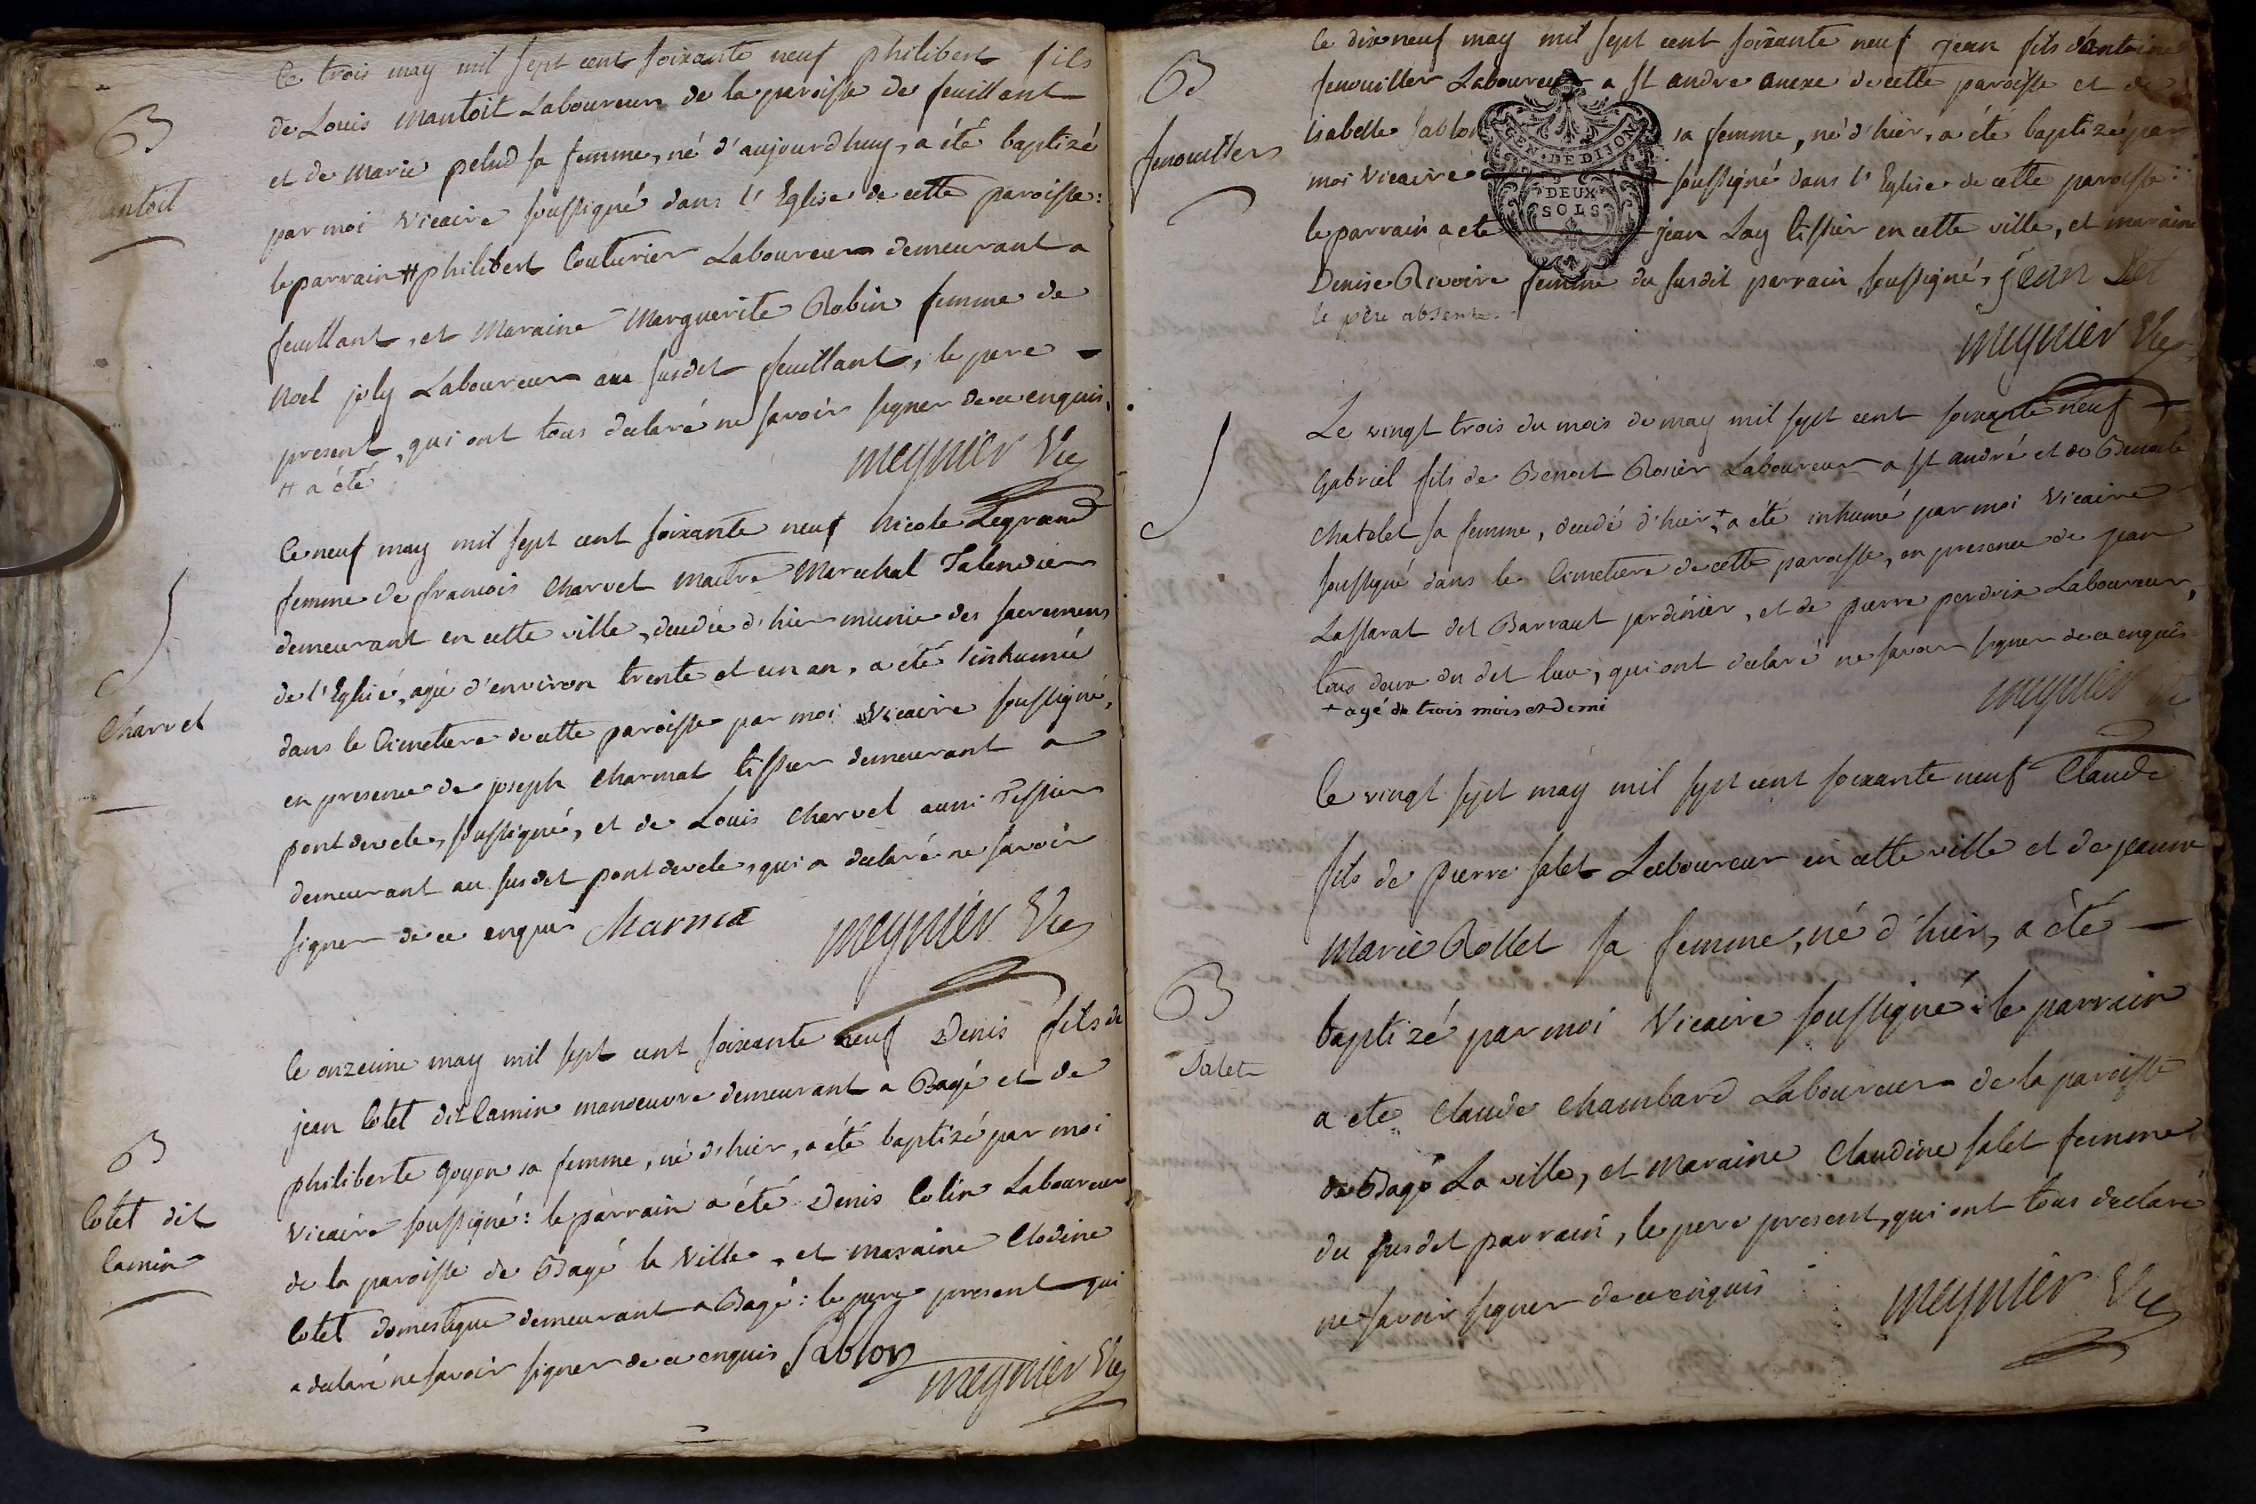 B
antoit
Ce trois may mil sept cent soixante neuf philibert fils
de Louis Mantoit Laboureur de la paroisse de feuillant
et de Marie pelud sa femme, né d'aujourd huy, a été baptizé
par moi Vicaire soussigné dans l'Eglise de cette paroisse:
le parrain # philibert Couturier Laboureur demeurant a
feuillant, et Maraine Marguerite Robin femme de
Noel joly Laboureur au susdit feuillant, le pere
present, qui ont tous declaré ne savoir signer de ce enquis,
# a été
meynier Vic
Charvet
Ce neuf may mil sept cent soixante neuf Nicole Legrand
femme de francois Charvet maitre Marechal Talendier
demeurant en cette ville, decedée d'hier munie des sacremens
de l'Eglise, agée d'environ trente et un an, a été inhumée
dans le Cimetiere de cette paroisse par moi Vicaire soussigné,
en presence de joseph Charmat tissier demeurant a
pontdevele, soussigné, et de Louis Charvet aussi Tissier
demeurant au susdit pontdevele, qui a declaré ne savoir
signer de ce enquis Marmat meynier Vic
B
Cotet dit
Camin
Ce onzeime may mil sept cent soixante neuf Denis fils de
jean Cotet dit Camin manoeuvre demeurant a Bagé et de
philiberte Goyon sa femme, né d'hier, a été baptizé par moi
Vicaire soussigné: le parrain a été Denis Colin Laboureur
de la paroisse de Bagé la Ville, et maraine Clodine
Cotet domestique demeurant a Bagé: le pere present qui
a declaré ne savoir signer de ce enquis Sablon
meynier Vic
B
fenouiller
Ce dixneuf may mil sept cent soixante neuf jean fils d'antoine
fenouiller Laboureur a St andre anexe de cette paroisse et de
isabelle Sablon sa femme, né d'hier, a été baptizé par
moi Vicaire soussigné dans l'Eglise de cette paroisse:
le parrain a ete jean Lay tissier en cette ville, et maraine
Denise Rivoire femme du susdit parrain soussigné, jean
le père absent.
GEN · DE DIJON
DEUX
SOLS
meynier Vic
Le vingt trois du mois de may mil sept cent soixante neuf
Gabriel fils de Benoit Rosier Laboureur a St andré et de Benoite
Chatelet sa femme, decedé d'hier + a été inhumé par moi Vicaire
soussigné dans le Cimetiere de cette paroisse, en presence de jean
Lassarat dit Barraut jardinier, et de pierre perdrix Laboureur,
tous deux du dit lieu, qui ont declaré ne savoir signer de ce enquis
+ agé de trois mois et demi
meynier Vic
B
Salet
Ce vingt sept may mil sept cent soixante neuf Claude
fils de pierre salet Laboureur en cette ville et de jeanne
Marie Rollet sa femme, né d'hier, a été
baptizé par moi Vicaire soussigné: le parrain
a ete Claude Chambard Laboureur de la paroisse
de Bagé La ville, et Maraine Claudine salet femme
du susdit parrain, le pere present, qui ont tous declaré
ne savoir signer de ce enquis
meynier Vic